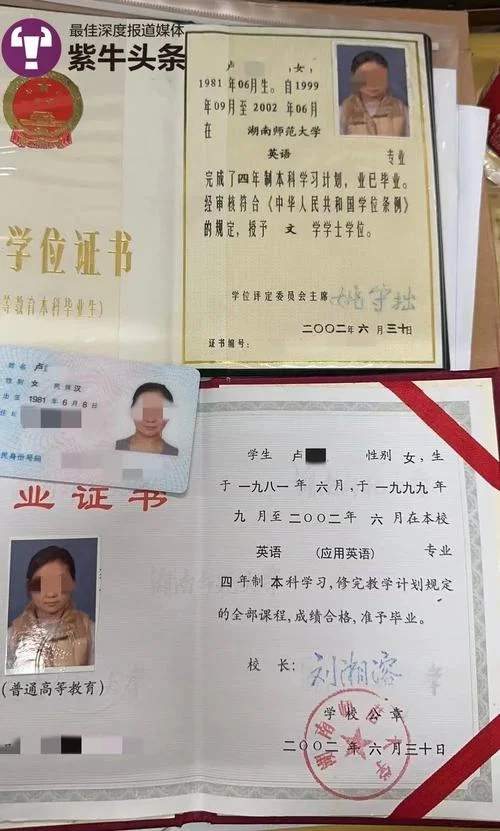 最佳深度报道媒体
紫牛头条
卢 ,女,
1981年06月生。自1999
年09月至2002年06月
在 湖南师范大学
英语 专业
完成了四年制本科学习计划，业已毕业。
经审核符合《中华人民共和国学位条例》
的规定，授予 文 学学士学位。
学位评定委员会主席 姚守拙
二〇〇二年 六 月三十日
证书编号:
学位证书
等教育本科毕业生)
姓名 卢
性别 女 民族 汉
出生 1981年6月8日
住址
民身份号码
业证书
学生 卢 性别 女，生
于一九八一年 六月，于一九九九年
九月至二〇〇二年 六月在本校
英语 (应用英语) 专业
四年制 本科学习，修完教学计划规定
的全部课程，成绩合格，准予毕业。
校 长: 刘湘溶
学校公章
二〇〇二年 六 月三十日
(普通高等教育)
湖南师范大学